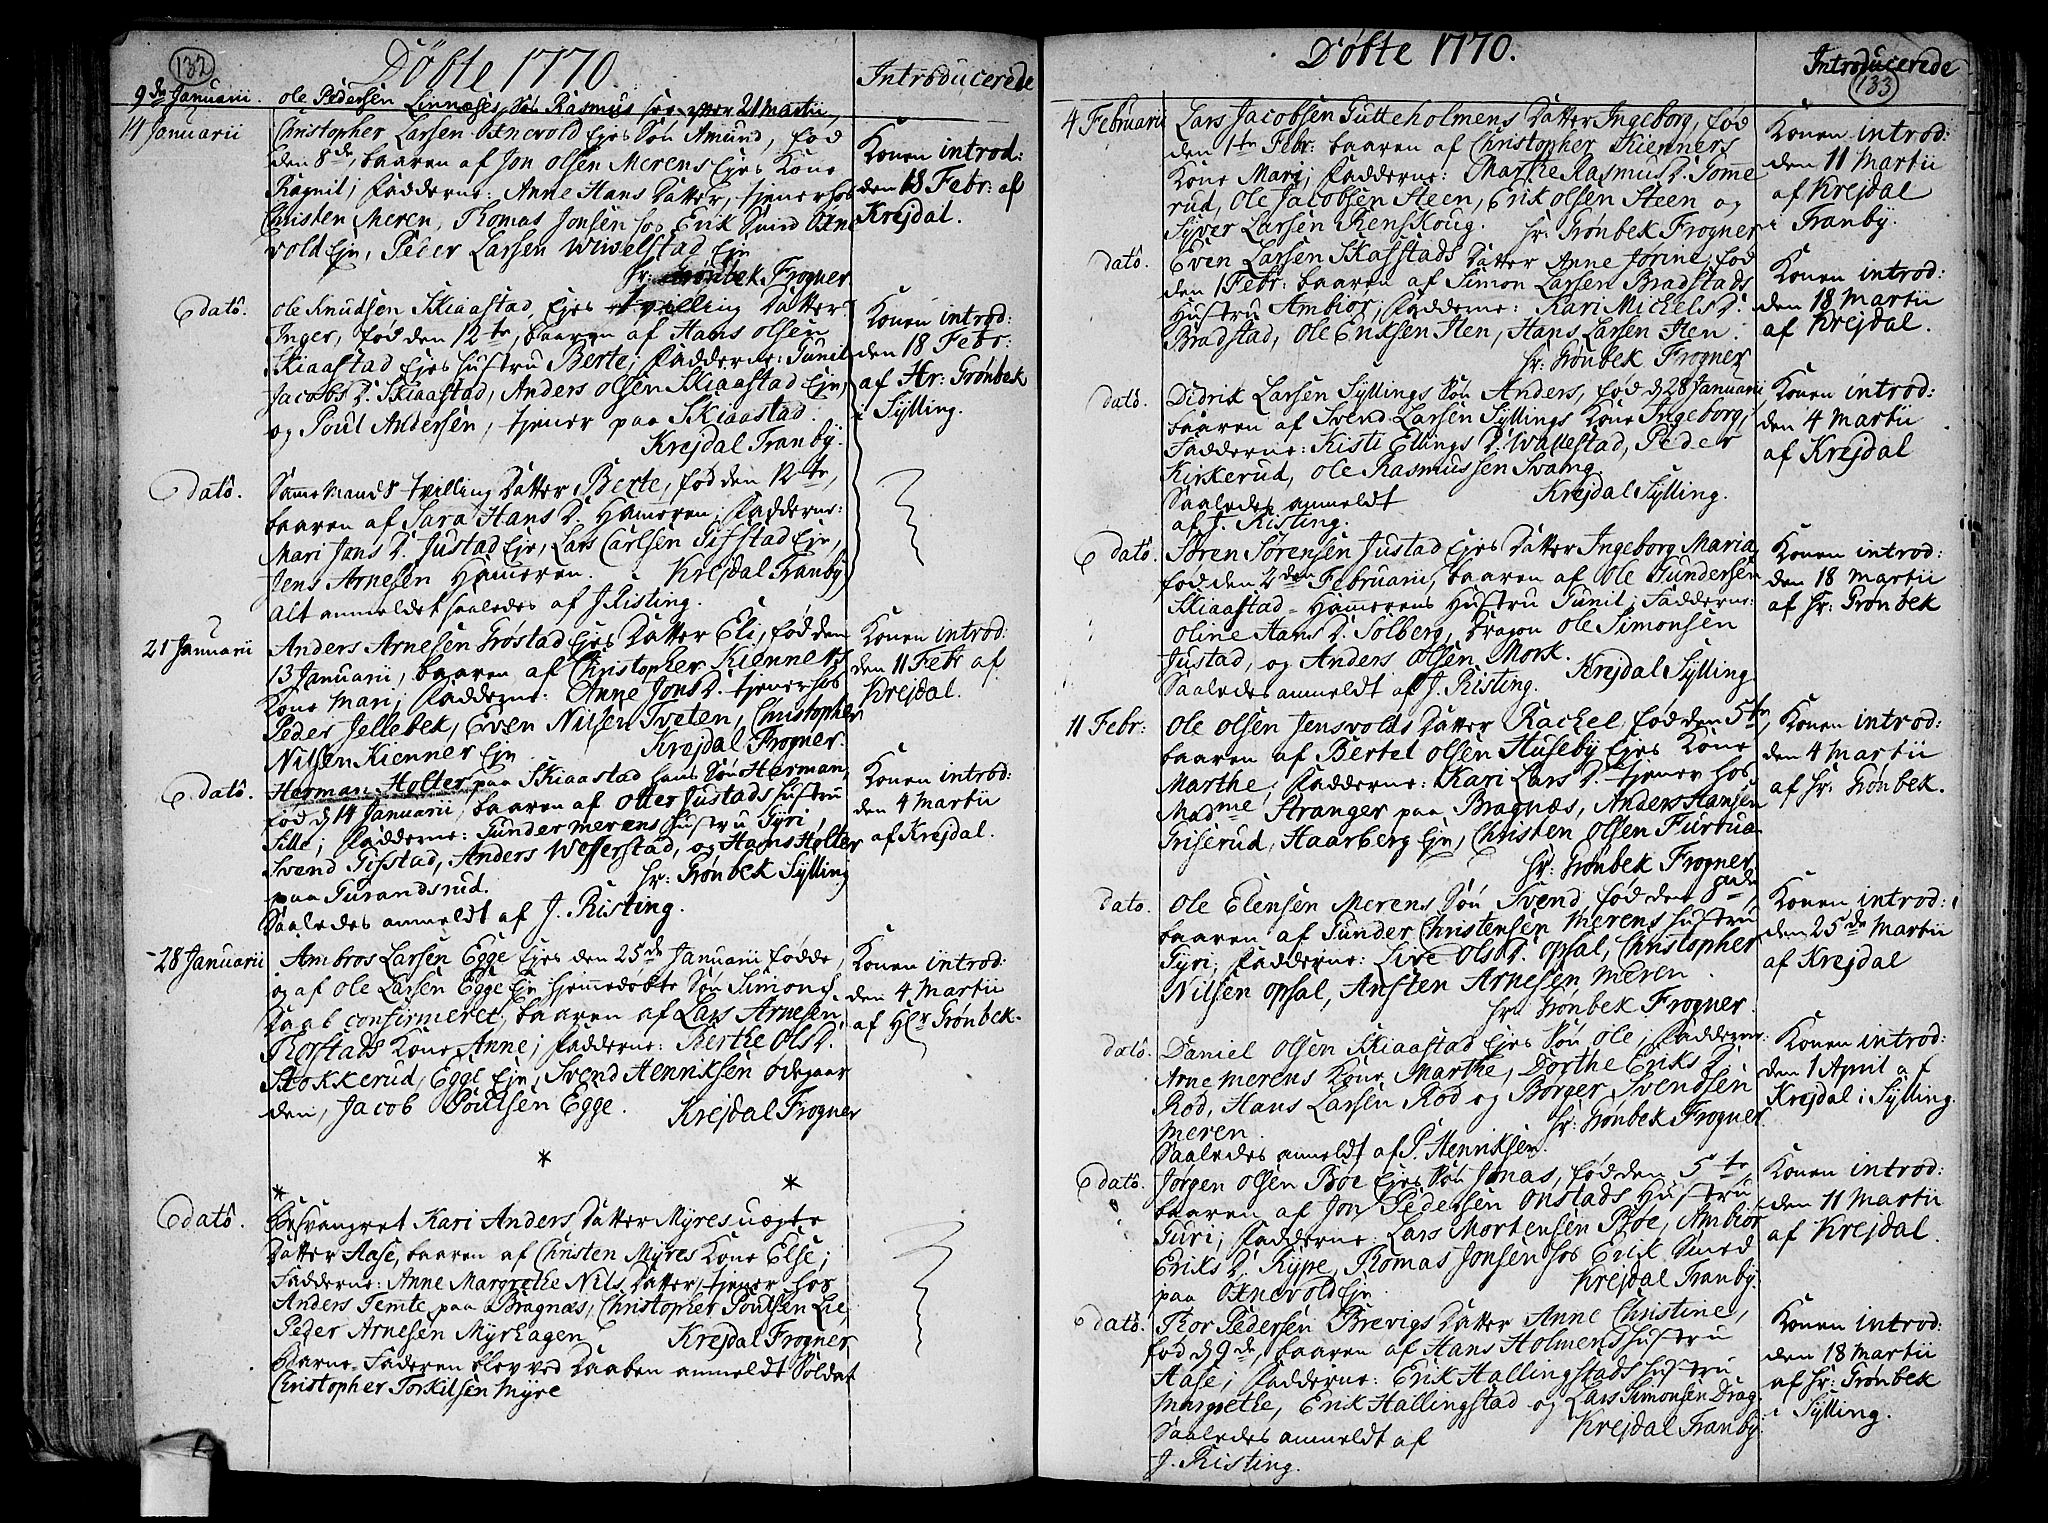 132
Döbte 1770.
Introducerede
9de Januarii. Ole Pedersen Linnæses Søn Rasmus see efter 21 Martii
14 Januarii
Christopher Larsen Oxnevold Ejes Søn Amund, fød
den 8de, baaren af Jon Olsen Merens Ejes Kone
Ragnil; Fadderne: Anne Hans Datter, tjener hos
Christen Meren, Thomas Jonsen hos Erik Smed Oxne
vold Eje, Peder Larsen Wiiselstad Eje
hr: Grönbek Frogner
Konen introd:
den 18 Febr: af
Krejdal.
Dato.
Ole Knudsen Skiaastad, Ejes tvilling Datter
Inger, fød den 12te, baaren af Hans Olsen
Skiaastad Ejes Hustru Berte; Fadderne: Gunil
Jacobs D. Skiaastad, Anders Olsen Skiaastad Eje,
og Poul Andersen, tjener paa Skiaastad.
Krejdal Tranby.
Konen introd:
den 18 Febr:
af Hr: Grönbek
i Sylling.
Dato.
Samme Mands tvilling Datter Berte, fød den 12te,
baaren af Sara Hans D. Hameren; Fadderne:
Mari Jans D. Justad Eje, Lars Carlsen Gifstad Eje,
Jens Arnesen Hameren. Krejdal Tranby
alt anmeldet saaledes af J. Risting.
21 Januarii
Anders Arnesen Gröstad Ejes Datter Eli, fød den
13 Januarii, baaren af Christopher Kienners
Kone Mari; Fadderne: Anne Jons D. tjener hos
Peder Jellebek, Even Nilsen Tveten, Christopher
Nilsen Kienner Eje Krejdal Frogner.
Konen introd:
den 11 Febr af
Krejdal.
Dato.
Herman Holter paa Skiaastad hans Søn Herman,
fød d 14 Januarii, baaren af Otter Justads Hustru
Sille; Fadderne: Gunder Merens Hustru Gyri,
Svend Gifstad, Anders Wefferstad, og Hans Holter
paa Gurandsrud. hr: Grönbek Sylling
Saaledes anmeldt af J. Risting.
Konen introd:
den 4 Martii
af Krejdal.
28 Januarii
Ambros Larsen Egge Ejes den 25de Januarii fødde,
og af Ole Larsen Egge Eje hjemmedöbte Søn Simon,
Daab confirmeret, baaren af Lars Arnesen
Rorstads Kone Anne; Fadderne: Berthe Ols D.
Stokkerud, Egge Eje, Svend Henriksen Ødegaar
den, Jacob Poulsen Egge. Krejdal Frogner
Konen introd:
den 4 Martii
af Hr Grönbek.
Dato.
Besvangret Kari Anders Datter Myres uægte
Datter Aase, baaren af Christen Myres Kone Else;
Fadderne: Anne Margrethe Nils Datter, tjener hos
Anders Temte paa Bragnæs, Christopher Poulsen Lie,
Peder Arnesen Myrhagen Krejdal Frogner
Barne-Faderen blev ved Daaben anmeldt Soldat
Christopher Torkilsen Myre
Döbte 1770.
Introducerede
133
4 Februarii
Lars Jacobsen Gutteholmens Datter Ingeborg, fød
den 1te Febr: baaren af Christopher Kienners
Kone Mari; Fadderne: Marthe Rasmus D. Tomme
rud, Ole Jacobsen Steen, Erik Olsen Steen og
Syver Larsen Renskoug. hr: Grönbek Frogner
Konen introd:
den 11 Martii
af Krejdal
i Tranby.
Dato.
Even Larsen Skafstads Datter Anne Jørine, fød
den 1 Febr: baaren af Simon Larsen Bradstads
Hustru Ambior; Fadderne: Kari Michels D.
Bradstad, Ole Eriksen Sten, Hans Larsen Sten
hr: Grönbek Frogner
Konen introd:
den 18 Martii
af Krejdal.
Dato.
Didrik Larsen Syllings Søn Anders, fød d 28 Januarii
baaren af Svend Larsen Syllings Kone Ingeborg;
Fadderne: Kisti Ellings D. Wallestad, Peder
Kirkerud, Ole Rasmussen Svang.
Saaledes anmeldt Krejdal Sylling.
af J. Risting.
Konen introd:
den 4 Martii
af Krejdal
Dato.
Sören Sörensen Justad Ejes Datter Ingeborg Maria,
fød den 2den Februarii, baaren af Ole Gundersen
Skiaastad-Hamerens Hustru Gunil; Fadderne:
Oline Hans D. Solberg, Dragon Ole Simonsen
Justad, og Anders Olsen Mork.
Saaledes anmeldt af J. Risting. Krejdal Sylling.
Konen introd:
den 18 Martii
af hr: Grönbek
11 Febr:
Ole Olsen Jensvolds Datter Rachel, fød den 5te,
baaren af Bertel Olsen Huseby Ejes Kone
Marthe; Fadderne: Kari Lars D. tjener hos
Madme Stranger paa Bragnæs, Anders Hansen
Griserud, Haarberg Eje, Christen Olsen Furua.
hr: Grönbek Frogner
Konen introd:
den 4 Martii
af hr: Grönbek.
Dato.
Ole Elensen Merens Søn Svend, fød den
baaren af Gunder Christensen Merens Hustru
Gyri; Fadderne: Live Ols D. Opsal, Christopher
Nilsen Opsal, Ansten Arnesen Meren.
hr: Grönbek Frogner.
Konen introd:
den 25de Martii
af Krejdal
Dato.
Daniel Olsen Skiaastad Ejes Søn Ole, Fadderne
Arne Merens Kone Marthe, Dorthe Eriks D.
Röd, Hans Larsen Röd og Borger Svendsen
Meren. hr: Grönbek Frogner.
Saaledes anmeldt af P. Henriksen.
Konen introd:
den 1 April af
Krejdal i Sylling.
Dato.
Jörgen Olsen Böe Ejes Søn Jonas, fød den 5te,
baaren af Jon Pedersen Onstads Hustru
Guri; Fadderne: Lars Mortensen Böe, Ambior
Eriks D. Rype, Thomas Jonsen hos Erik Smed
paa Oxnevold Eje. Krejdal Tranby.
Konen introd:
den 11 Martii
af Krejdal.
Dato.
Thor Pedersen Brevigs Datter Anne Christine,
fød d 9de, baaren af Hans Holmens Hustru
Aase; Fadderne: Erik Hallingstads Hustru
Margrethe, Erik Hallingstad og Lars Simonsen Drag.
Saaledes anmeldt af Krejdal Tranby.
J. Risting.
Konen introd:
den 18 Martii
af hr: Grönbek
i Sylling.